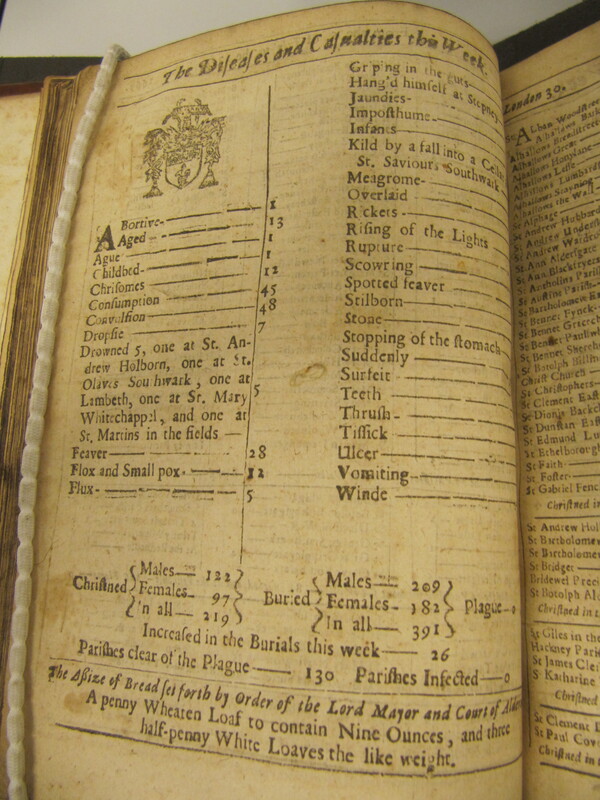 The Diſeaſes and Caſualties this Week.
ABortive 1
Aged 13
Ague 1
Childbed 1
Chriſomes 12
Conſumption 45
Convulſion 48
Dropſie 7
Drowned 5, one at St. An-
drew Holborn, one at St.
Olaves Southwark, one at
Lambeth, one at St. Mary 5
Whitechappel, and one at
St. Martins in the fields
Feaver 28
Flox and Small pox 12
Flux 5
Griping in the guts
Hang'd himſelf at Stepney
Jaundies
Impoſthume
Infants
Kild by a fall into a Cellar
St. Saviours Southwark
Meagrome
Overlaid
Rickets
Riſing of the Lights
Rupture
Scowring
Spotted feaver
Stilborn
Stone
Stopping of the ſtomach
Suddenly
Surfeit
Teeth
Thruſh
Tiſſick
Ulcer
Vomiting
Winde
Chriſtned { Males 122 Females 97 In all 219 } Buried { Males 209 Females 182 In all 391 } Plague 0
Increaſed in the Burials this week 26
Pariſhes clear of the Plague 130 Pariſhes Infected 0
The Aſsize of Bread ſet forth by Order of the Lord Mayor and Court of Alder
A penny Wheaten Loaf to contain Nine Ounces, and three
half-penny White Loaves the like weight.
London 30.
St ALban Woodſtreet
Alhallows Bark
Alhallows Breadſtreet
Alhallows Great
Alhallows Honylane
Alhallows Leſſe
Alhallows Lumbardſt
Alhallows Staining
Alhallows the Wall
St Alphage
St Andrew Hubbard
St Andrew Underſh
St Andrew Wardro
St Ann Alderſgate
St Ann Blackfryers
St Antholins Pariſh
St Auſtins Pariſh
St Bartholomew Ex
St Bennet Fynck
St Bennet Gracech
St Bennet Paulſwh
St Bennet Shereho
St Botolph Billin
Chriſt Church
St Chriſtophers
St Clement Eaſt
St Dionis Backch
St Dunſtan Eaſt
St Edmund Lum
St Ethelborough
St Faith
St Foſter
St Gabriel Fenc
Chriſtned in
St Andrew Hol
St Bartholomew
St Bartholomew
St Bridget
Bridewel Precin
St Botolph Ald
Chriſtned in t
St Giles in the
Hackney Pariſh
St James Cler
St Katharine
Chriſtned
St Clement D
St Paul Cov
Chriſtned in